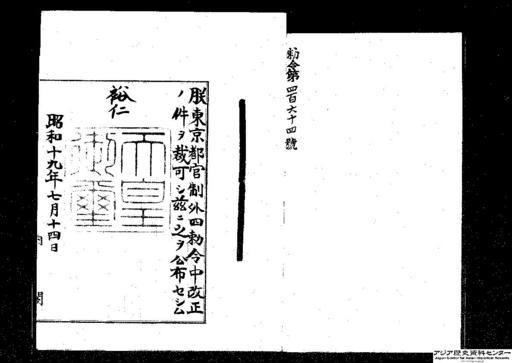 勅令第四百六十四號
朕東京都官制外四勅令中改正
ノ件ヲ裁可シ茲ニ之ヲ公布セシム
裕仁
天皇御璽
昭和十九年七月十四日
内閣
アジア歴史資料センター
Japan Center for Asian Historical Records